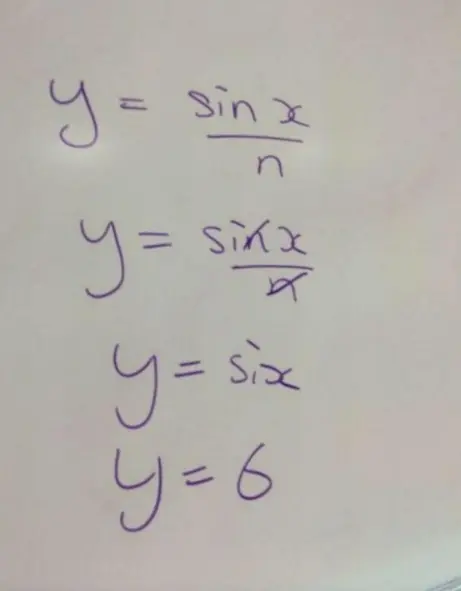 y = sin x / n
y = sinx / n
y = six
y = 6